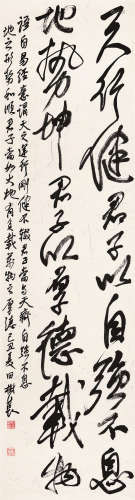 天行健君子以自强不息
地势坤君子以厚德载物
语自易经意谓天之运行刚健不辍君子当与天齐自强不息
地之形势和顺君子当如大地有负载万物之厚德己丑夏田树苌